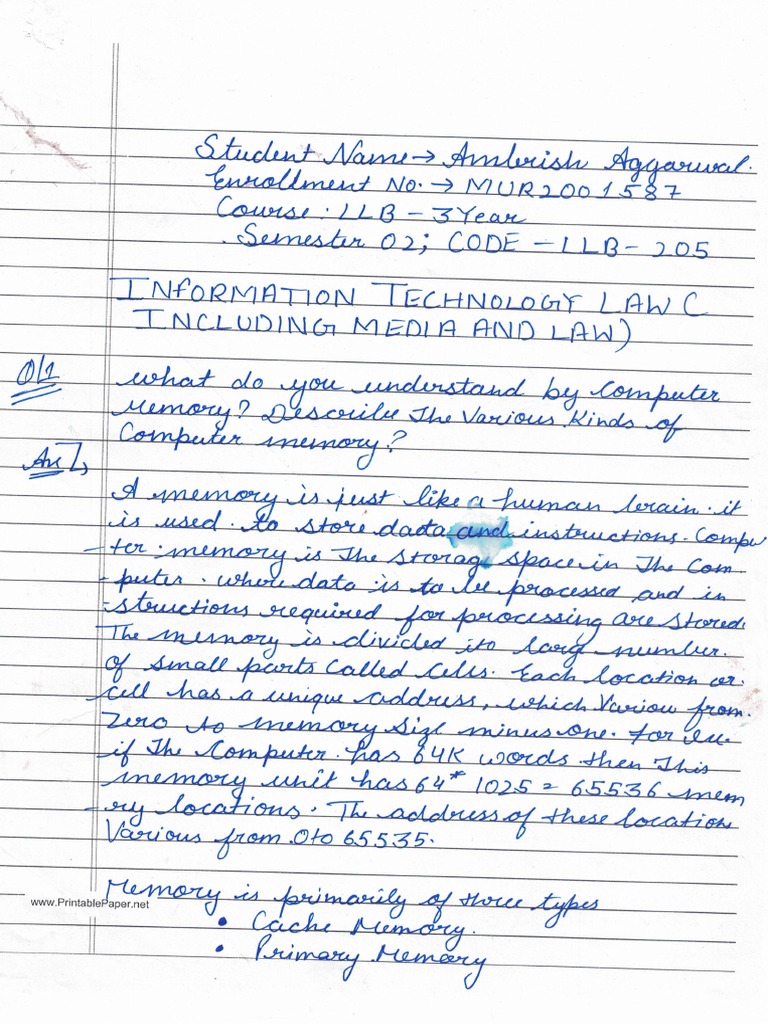 Student Name → Ambrish Aggarwal.
Enrollment No. → MUR2001587
Course: LLB - 3 Year
Semester 02; CODE - LLB - 205
INFORMATION TECHNOLOGY LAW (
INCLUDING MEDIA AND LAW)
Q/1 what do you understand by Computer
Memory? Describe The Various Kinds of
Computer memory?
Ans], A memory is just like a human brain. it
is used to store daata and instructions. Compu
-ter memory is The storage space in The Com-
-puter. where data is to be processed and in
-structions required for processing are stored.
The memory is divided ito larg number.
of small parts Called Cells. Each location or.
Cell has a unique address, which Variou from.
Zero to memory size minus one. for ex-
if The Computer has 64K words then This
memory unit has 64* 1025 = 65536 mem
-ory locations. The address of these location
Various from 0 to 65535.
Memory is primarily of three types
www.PrintablePaper.net
• Cache Memory.
• Primary Memory